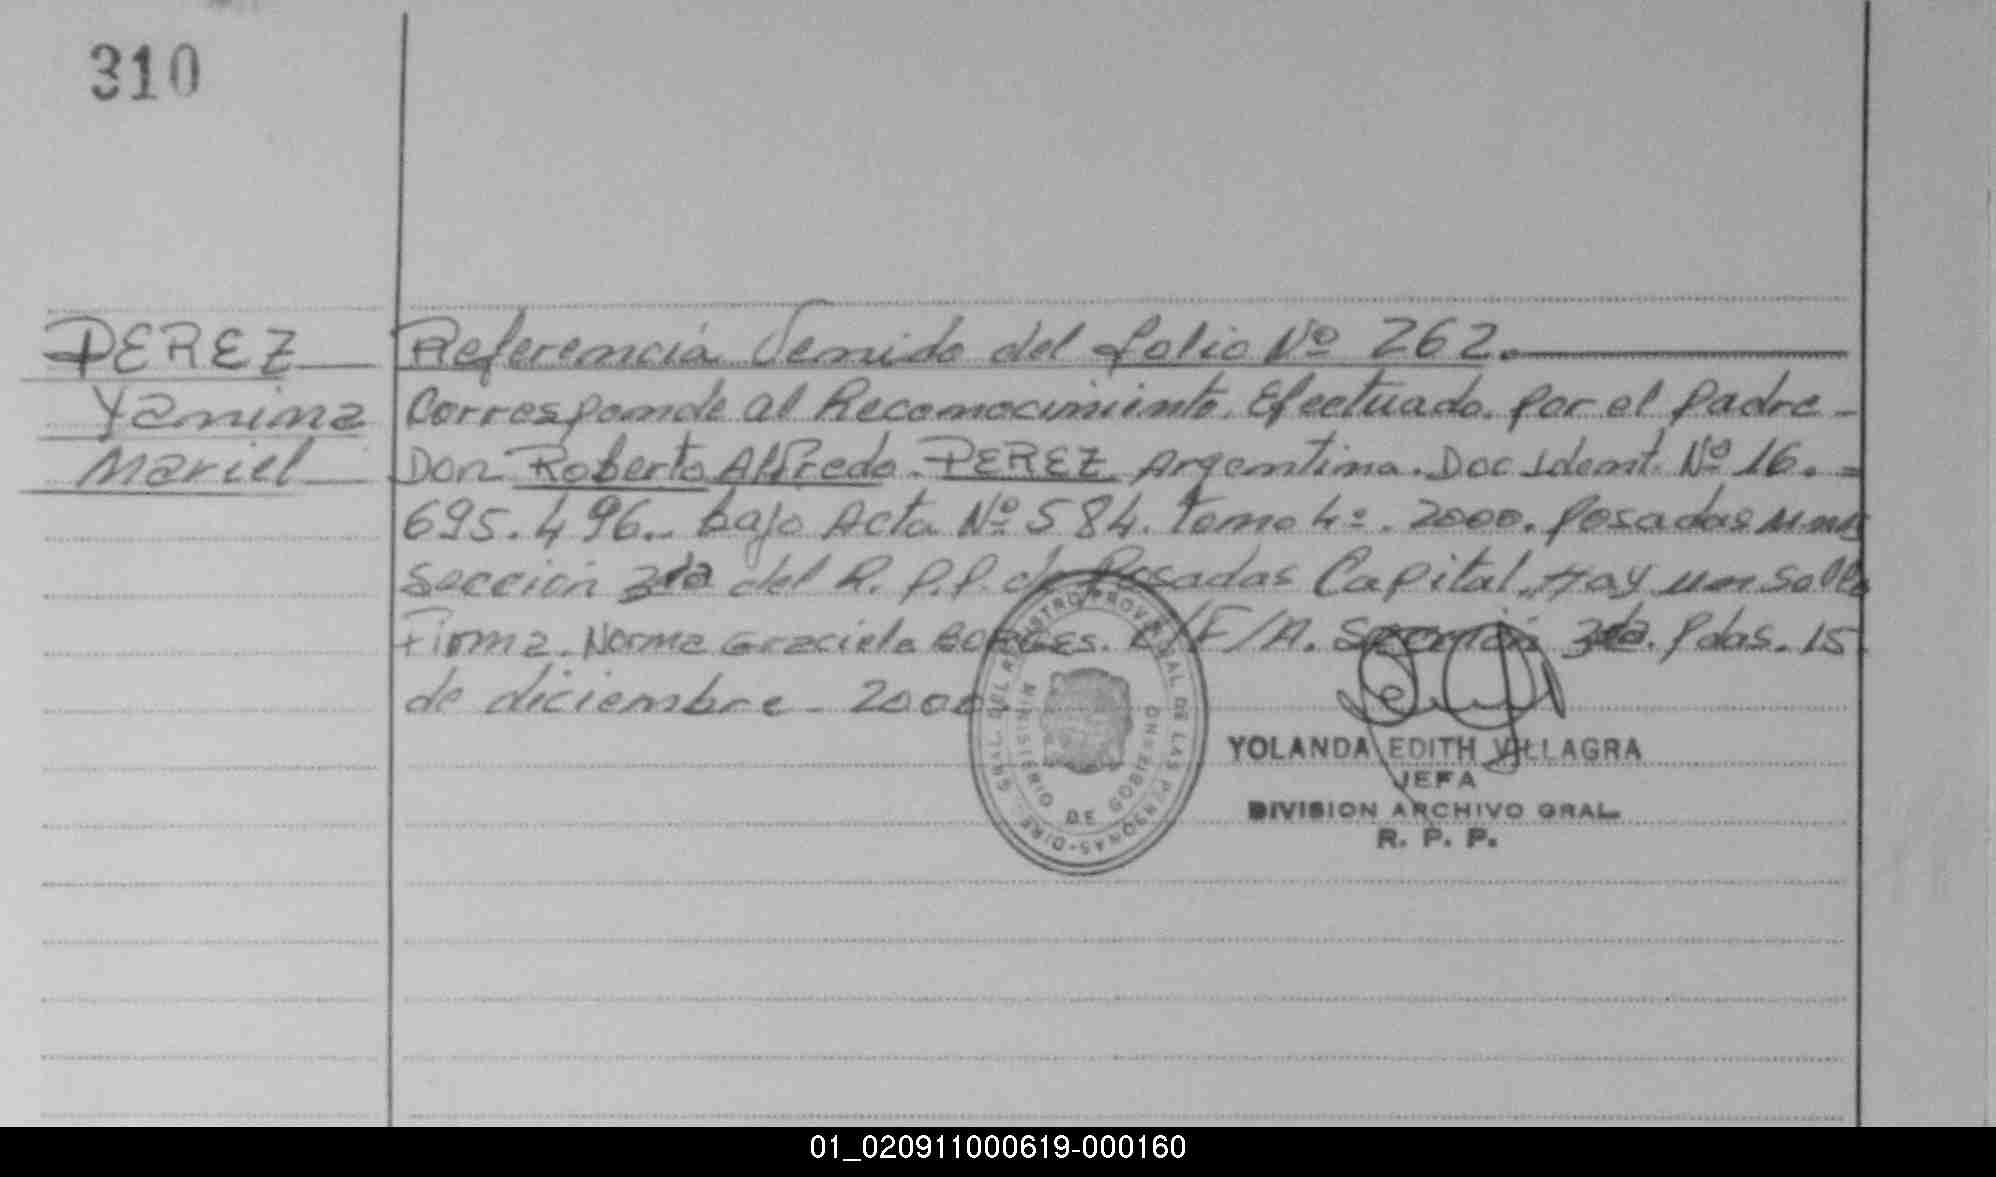 310
PEREZ
Yanina
Mariel
Referencia Venido del folio Nº 262.
Corresponde al Reconocimiento Efectuado por el padre
Don Roberto Alfredo PEREZ Argentino. Doc Ident. Nº 16.
695.496.. bajo Acta Nº 584. Tomo 4º. 2000. Posadas Mnes
Sección 3ra del R.P.P. de Posadas Capital, Hay un Sello
Firma. Norma Graciela BORGES. O/E/A. Sección 3ra. Pdas. 15
de diciembre - 2000
DIRE. GRAL. DEL REGISTRO PROVINCIAL DE LAS PERSONAS
MINISTERIO DE GOBIERNO
YOLANDA EDITH VILLAGRA
JEFA
DIVISION ARCHIVO GRAL.
R. P. P.
01_020911000619-000160